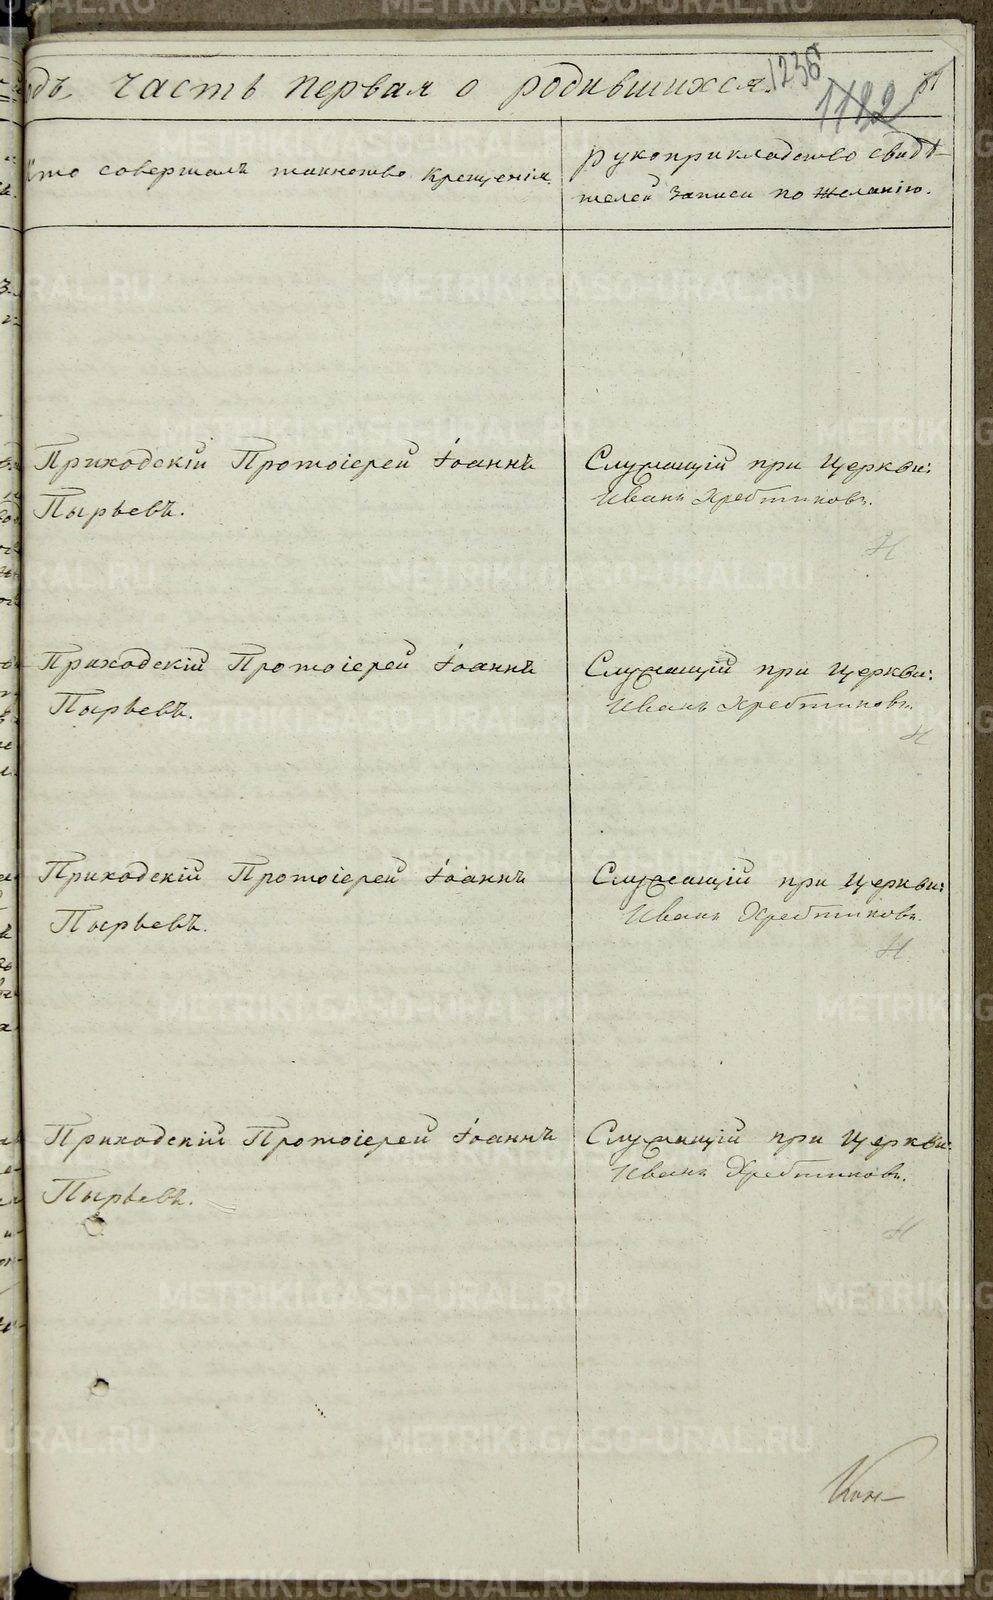 одъ, часть первая о родившихся.
1236
1122
Кто совершалъ таинство крещенія.
рукоприкладство свидѣ-
телей записи по желанію.
Приходскій Протоіерей Іоаннъ
Пырьевъ.
Служащій при Церкви:
Иванъ Хребтиковъ.
Н
Приходскій Протоіерей Іоаннъ
Пырьевъ.
Служащій при Церкви:
Иванъ Хребтиковъ.
Н
Приходскій Протоіерей Іоаннъ
Пырьевъ.
Служащій при Церкви:
Иванъ Хребтиковъ.
Н
Приходскій Протоіерей Іоаннъ
Пырьевъ.
Служащій при Церкви:
Иванъ Хребтиковъ.
Н
METRIKI.GASO-URAL.RU